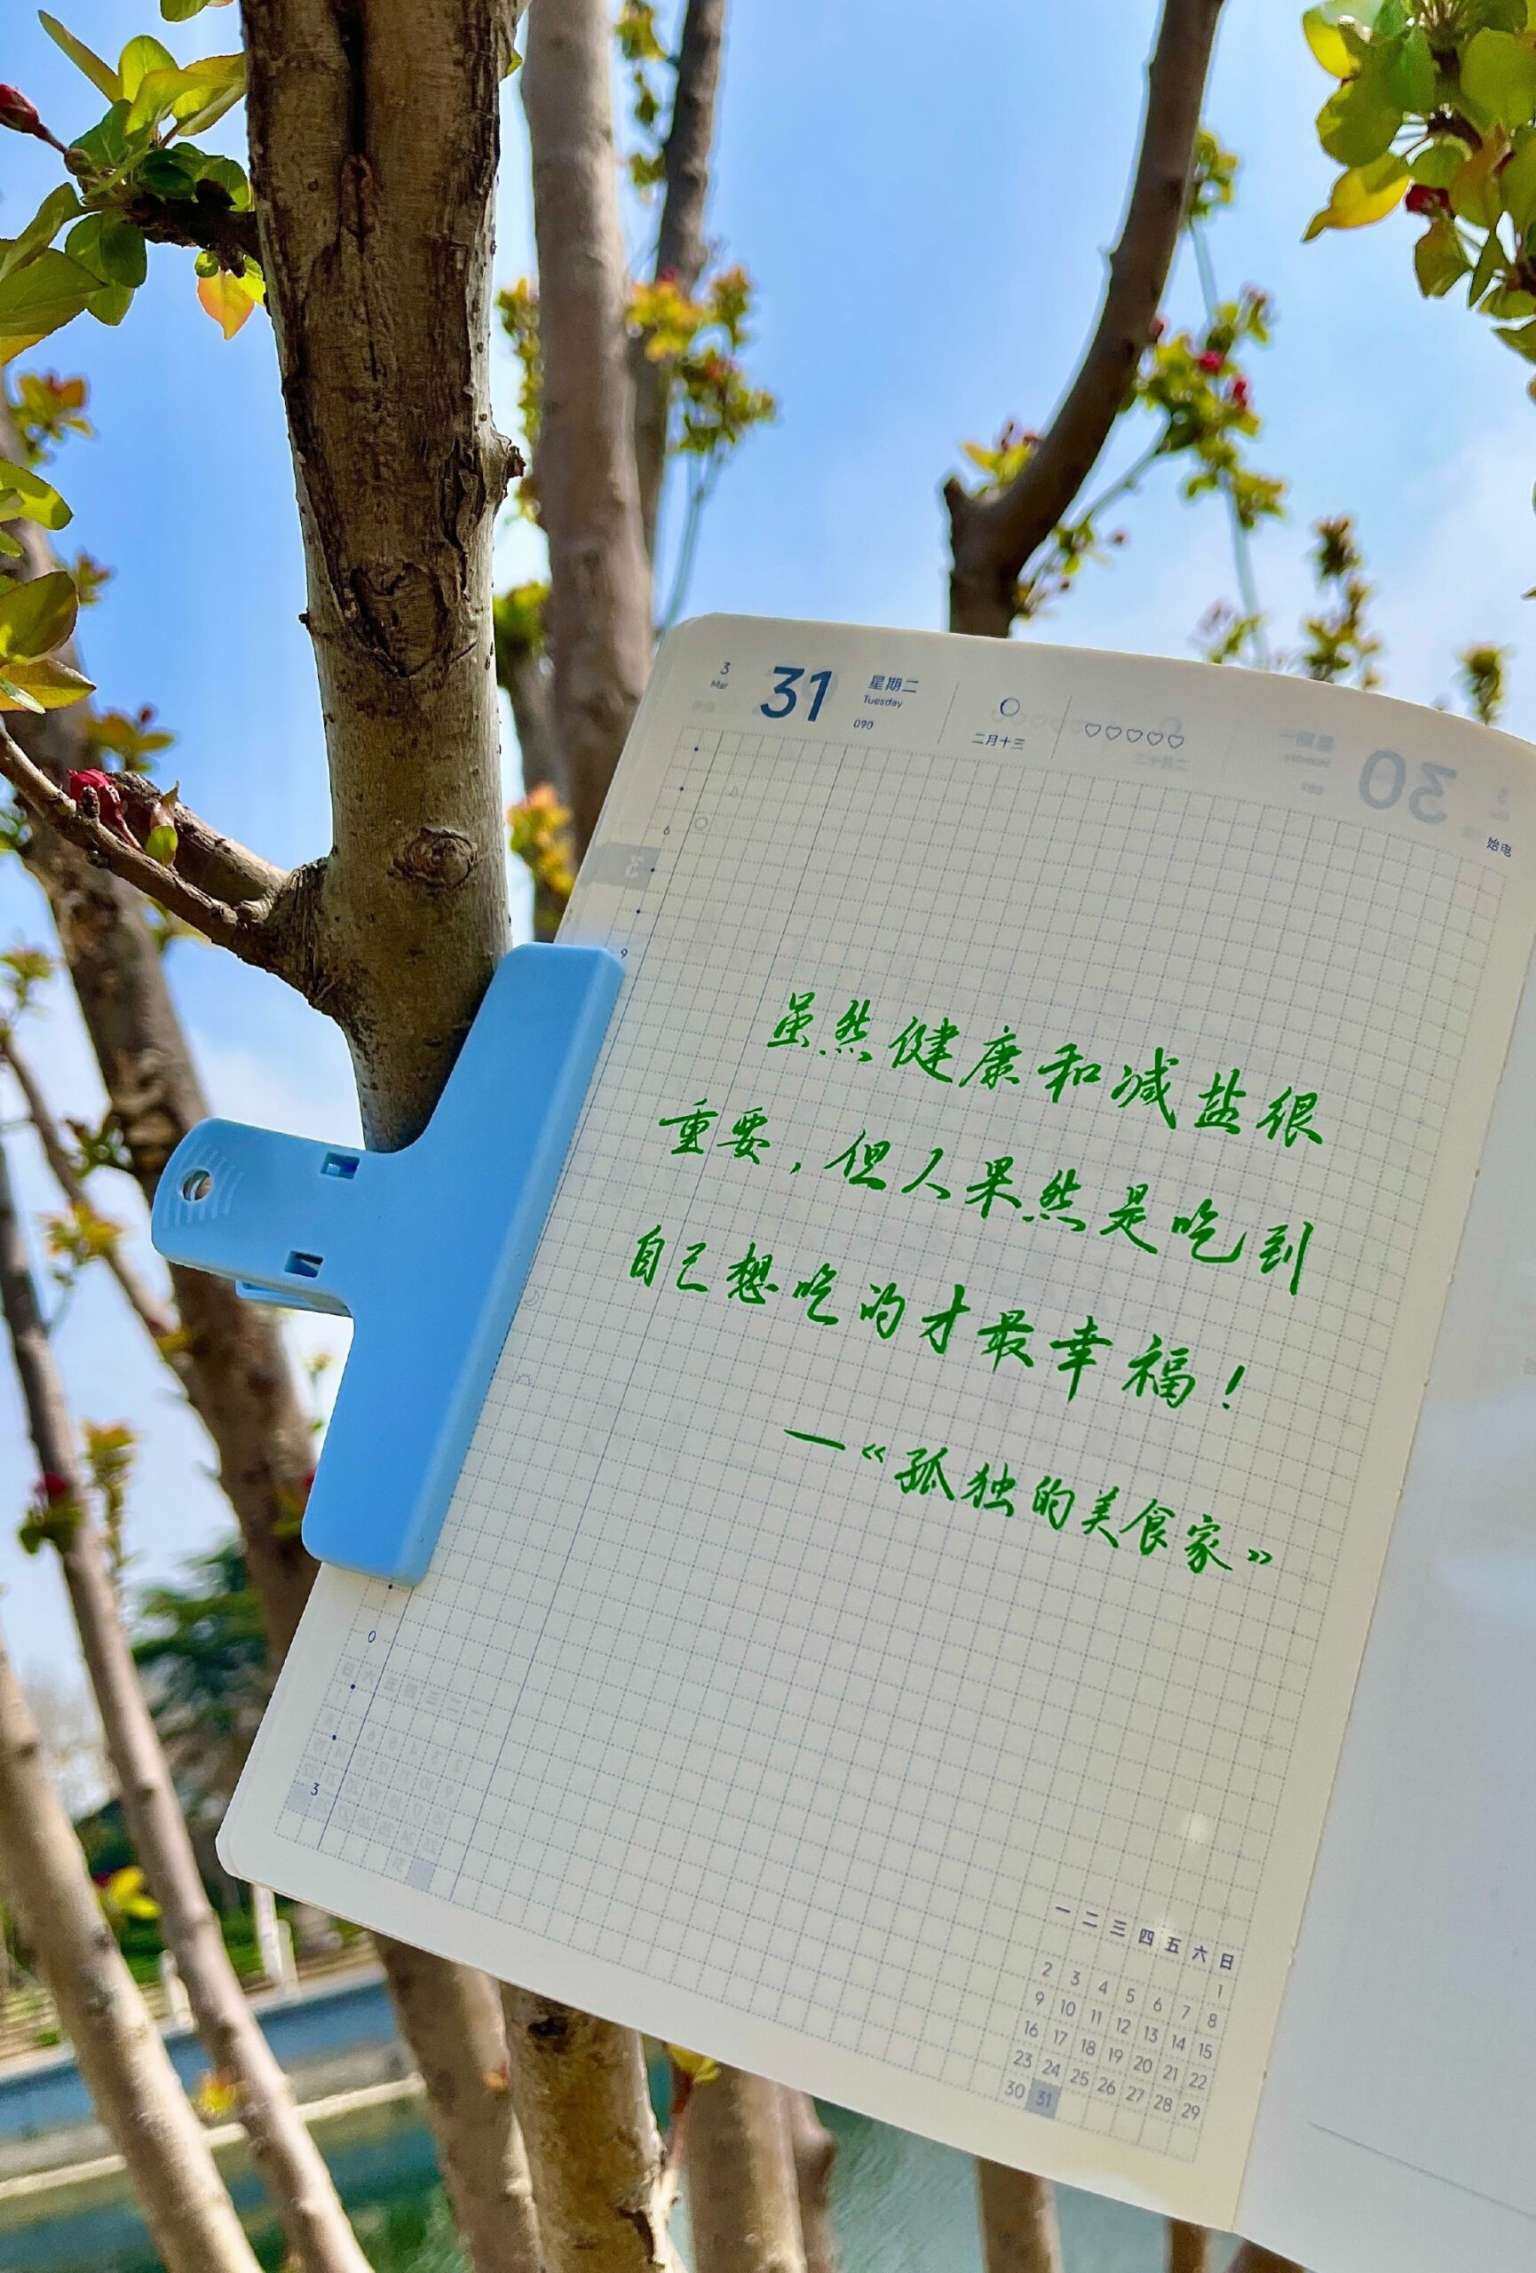 3
Mar
31
星期二
Tuesday
090
二月十三
30
始电
6
9
虽然健康和减盐很
重要，但人果然是吃到
自己想吃的才最幸福！
—《孤独的美食家》
0
3
一 二 三 四 五 六 日
1
2 3 4 5 6 7 8
9 10 11 12 13 14 15
16 17 18 19 20 21 22
23 24 25 26 27 28 29
30 31